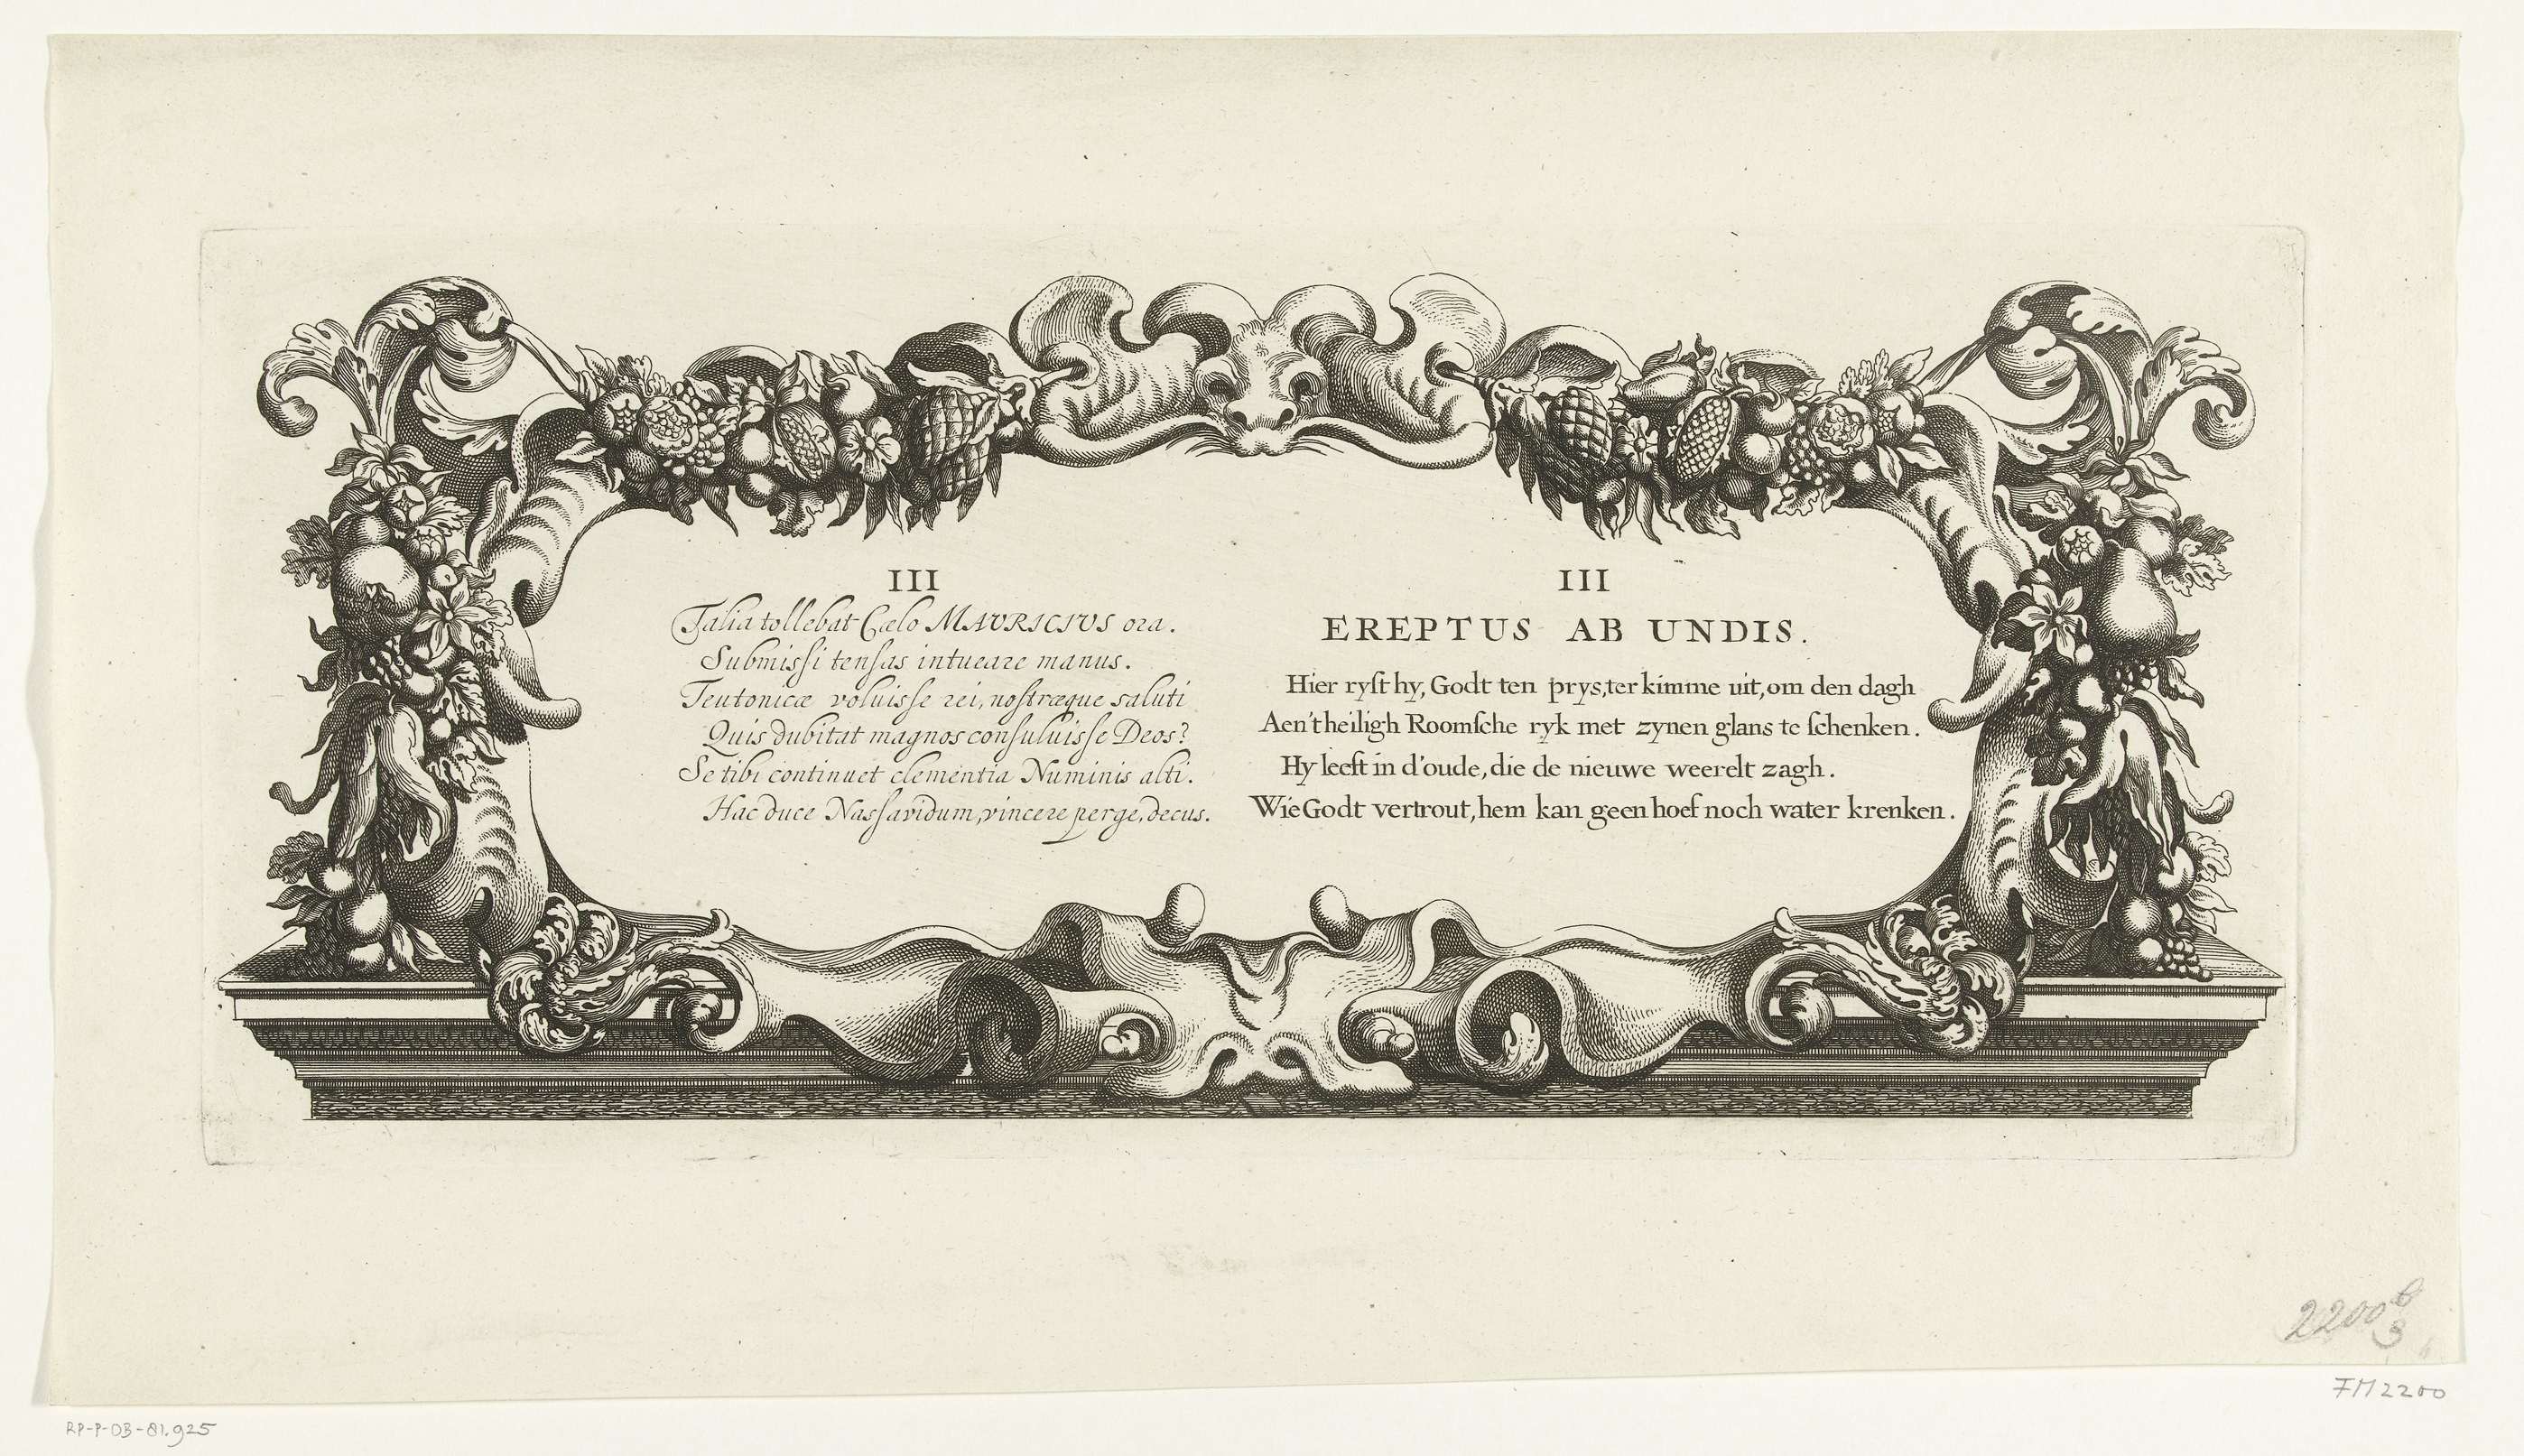 III
Talia tollebat Cælo MAVRICIVS ora.
Submiſſi tenſas intueare manus.
Teutonicæ voluiſſe rei, noſtræque saluti
Quis dubitat magnos conſuluiſſe Deos?
Se tibi continuet clementia Numinis alti.
Hac duce Naſſavidum, vincere perge, decus.
III
EREPTUS AB UNDIS.
Hier ryſt hy, Godt ten prys, ter kimme uit, om den dagh
Aen't heiligh Roomſche ryk met zynen glans te ſchenken.
Hy leeft in d'oude, die de nieuwe weerelt zagh.
Wie Godt vertrout, hem kan geen hoef noch water krenken.
2200 b
3
FM 2200
RP-P-OB-81.925